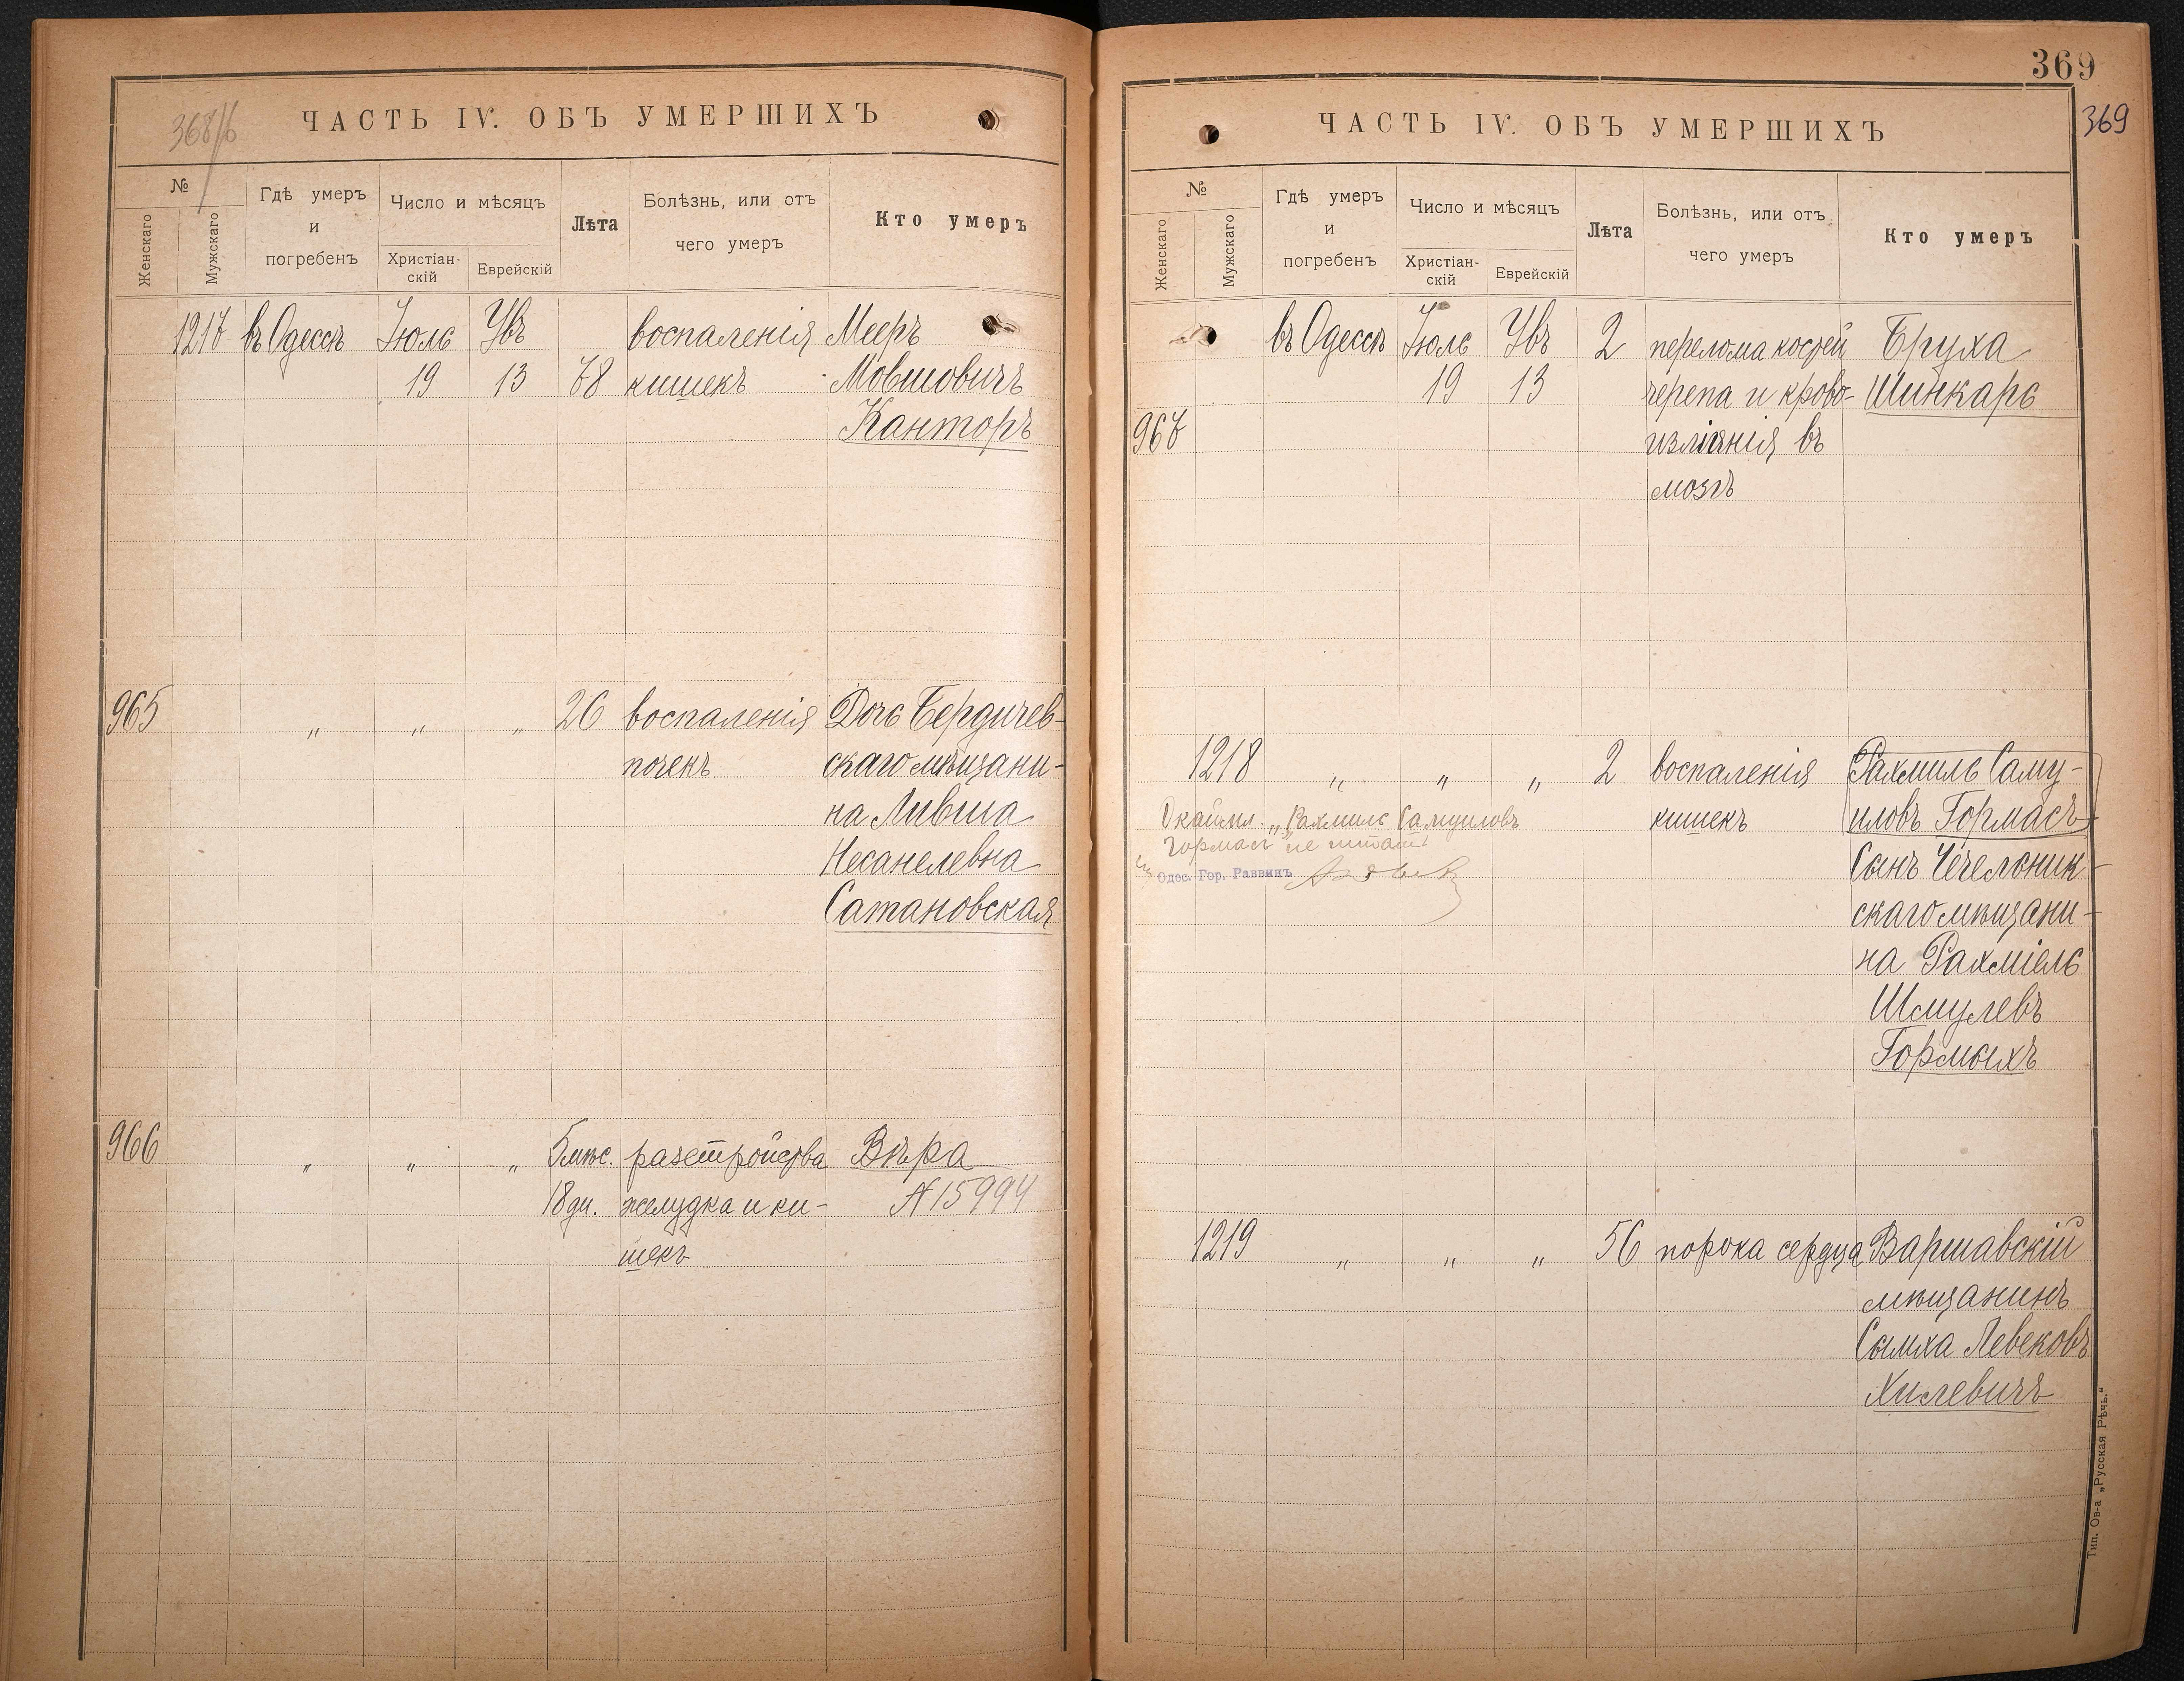 368/б
ЧАСТЬ IV. ОБЪ УМЕРШИХЪ
№
Женскаго
Мужскаго
Гдѣ умеръ
и
погребенъ
Число и мѣсяцъ
Христіан-
скій
Еврейскій
Лѣта
Болѣзнь, или отъ
чего умеръ
Кто умеръ
1217 въ Одессѣ Іюль Увъ воспаленія Мееръ
19 13 78 кишекъ Мовшовичъ
Канторъ
965 „ „ „ 26 воспаленія Дочь Бердичев-
почекъ скаго мѣщани-
на Ливша
Несанелевна
Сатановская
966 „ „ „ 5 мѣс. разстройства Вѣра
18 дн. желудка и ки- N 15994
шекъ
369
369
ЧАСТЬ IV. ОБЪ УМЕРШИХЪ
№
Женскаго
Мужскаго
Гдѣ умеръ
и
погребенъ
Число и мѣсяцъ
Христіан-
скій
Еврейскій
Лѣта
Болѣзнь, или отъ
чего умеръ
Кто умеръ
въ Одессѣ Іюль Увъ 2 перелома костей Бруха
19 13 черепа и крово- Шинкарь
967 изліянія въ
мозгъ
1218 „ „ „ 2 воспаленія Рахмиль Саму-
кишекъ иловъ Гормасъ
Окаймл. „Рахмиль Самуиловъ
Гормасъ не читать
Одес. Гор. Раввинъ
Сынъ Чечельник-
скаго мѣщани-
на Рахміель
Шмулевъ
Гормахъ
1219 „ „ „ 56 порока сердца Варшавскій
мѣщанинъ
Сымха Левековъ
Хилевичъ
Тип. Ов-а „Русская Рѣчь.“